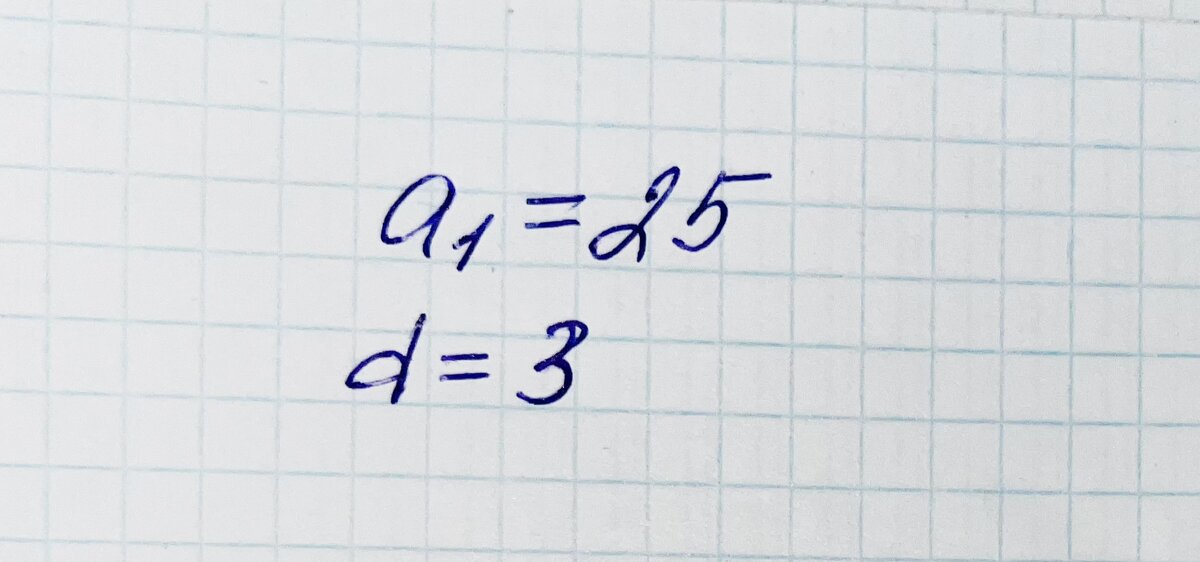 a₁ = 25
d = 3